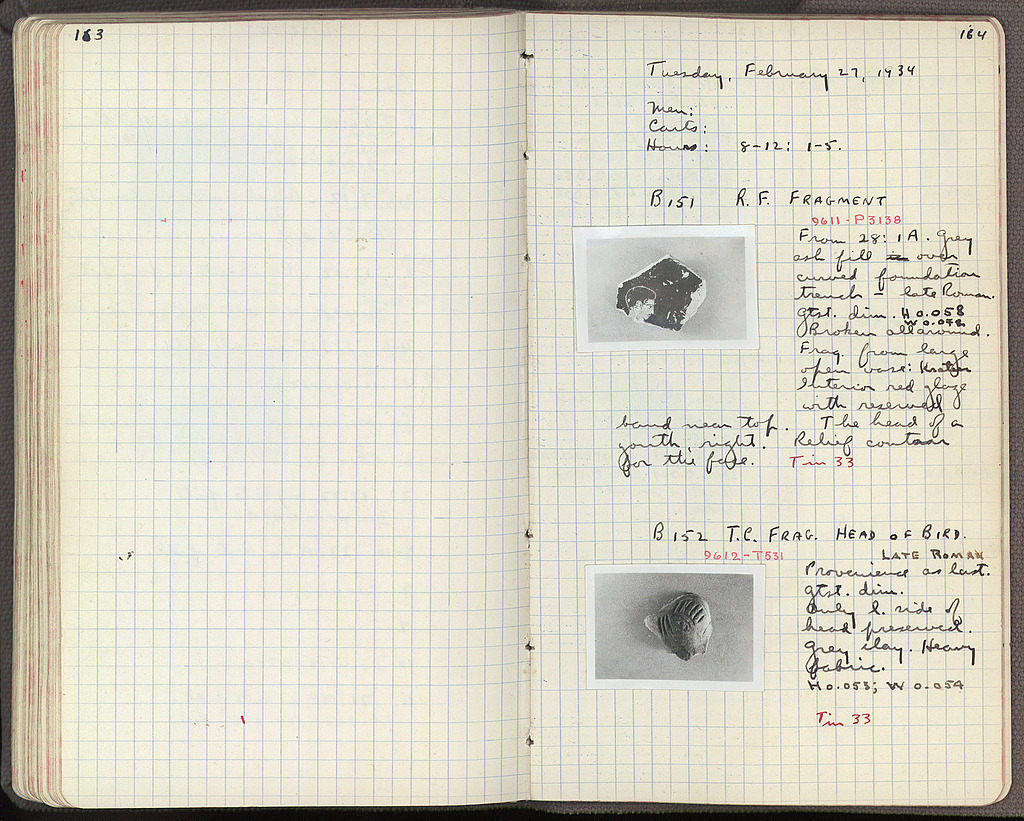 163
164
Tuesday, February 27, 1934
Men:
Carts:
Hours: 8-12: 1-5.
B 151 R. F. FRAGMENT
9611-P3138
From 28: 1A. Grey
ash fill over
curved foundation
trench - late Roman.
gtst. dim. H 0.058
W 0.078
Broken all around.
Frag. from large
open vase: Krater
Interior red glaze
with reserved
band near top. The head of a
youth, right. Relief contour
for the face. Tin 33
B 152 T.C. FRAG. HEAD OF BIRD.
9612-T531 LATE ROMAN
Provenience as last.
gtst. dim.
Only l. side of
head preserved.
Grey clay. Heavy
fabric.
H 0.053; W 0.054
Tin 33